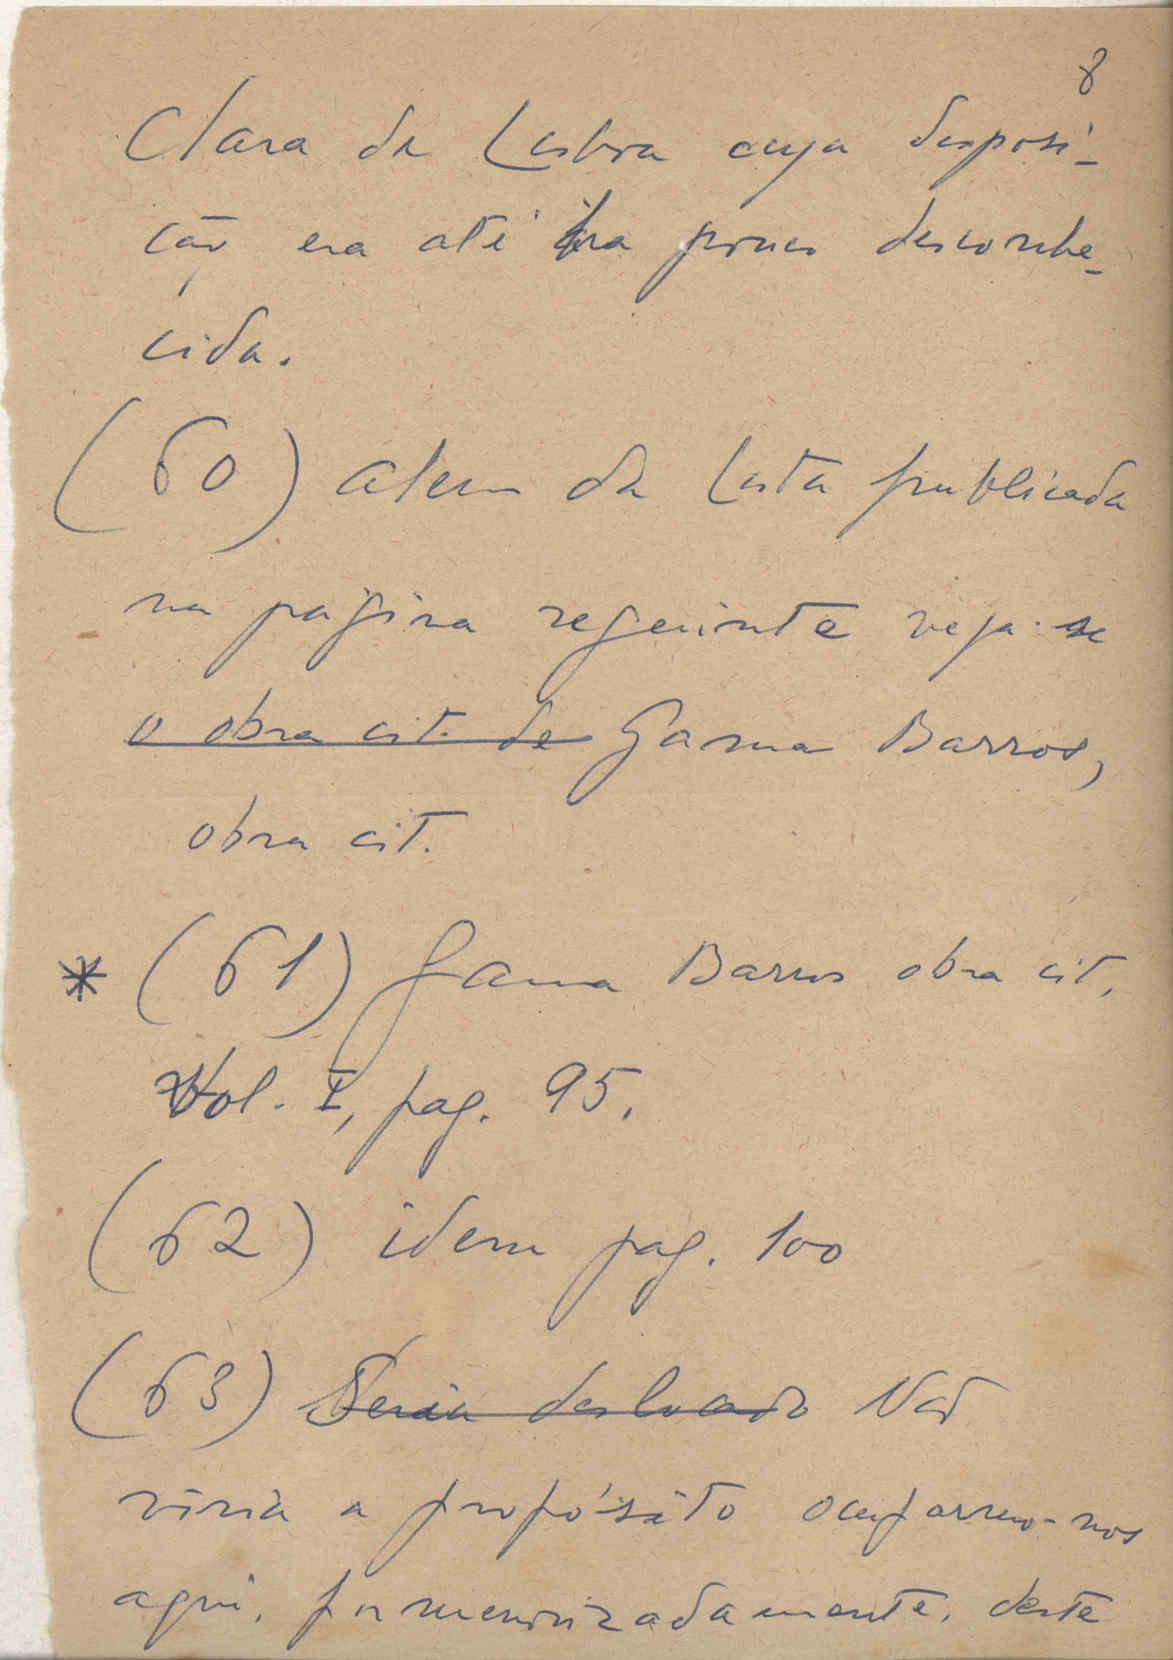 8
Clara de Lisboa cuja disposi-
ção era até ha pouco desconhe-
cida.
(60) alem da lista publicada
na página seguinte veja-se
o obra cit. de Gama Barros,
obra cit.
* (61) Gama Barros obra cit.
Vol. I, pag. 95.
(62) idem pag. 100
(63) Seria deslocado Não
viria a propósito ocuparmo-nos
aqui, pormenorizadamente, deste